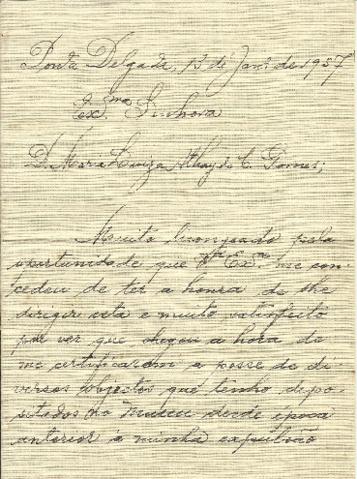 Ponta Delgada, 13 de Jan.º de 1957
Ex.ma Senhora
D. Maria Luiza Athayde C. Gomes;
Muito lisongeado pela
oportunidade que V. Ex.a me con-
cedeu de ter a honra de lhe
dirigir esta e muito satisfeito
por ver que chegou a hora de
me certificarem a posse de di-
versos objectos que tenho depo-
sitados no Museu desde epoca
anterior á minha expulsão